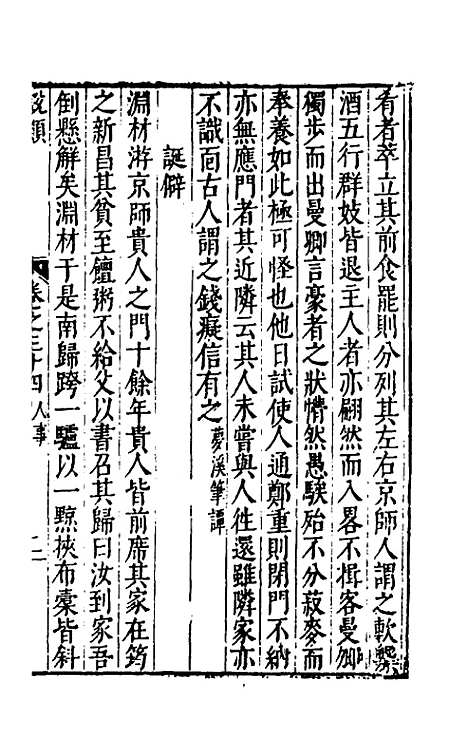 肴者萃立其前食罷則分列其左右京師人謂之軟槃
酒五行群妓皆退主人者亦翩然而入畧不揖客曼卿
獨步而出曼卿言豪者之狀懵然愚騃殆不分菽麥而
奉養如此極可怪也他日試使人通鄭重則閉門不納
亦無應門者其近隣云其人未嘗與人徃還雖隣家亦
不識面古人謂之錢癡信有之 夢溪筆譚
誕僻
淵材游京師貴人之門十餘年貴人皆前席其家在筠
之新昌其貧至饘粥不給父以書召其歸曰汝到家吾
倒懸解矣淵材于是南歸跨一驢以一黥挾布橐皆斜
說類 卷之三十四 人事 二